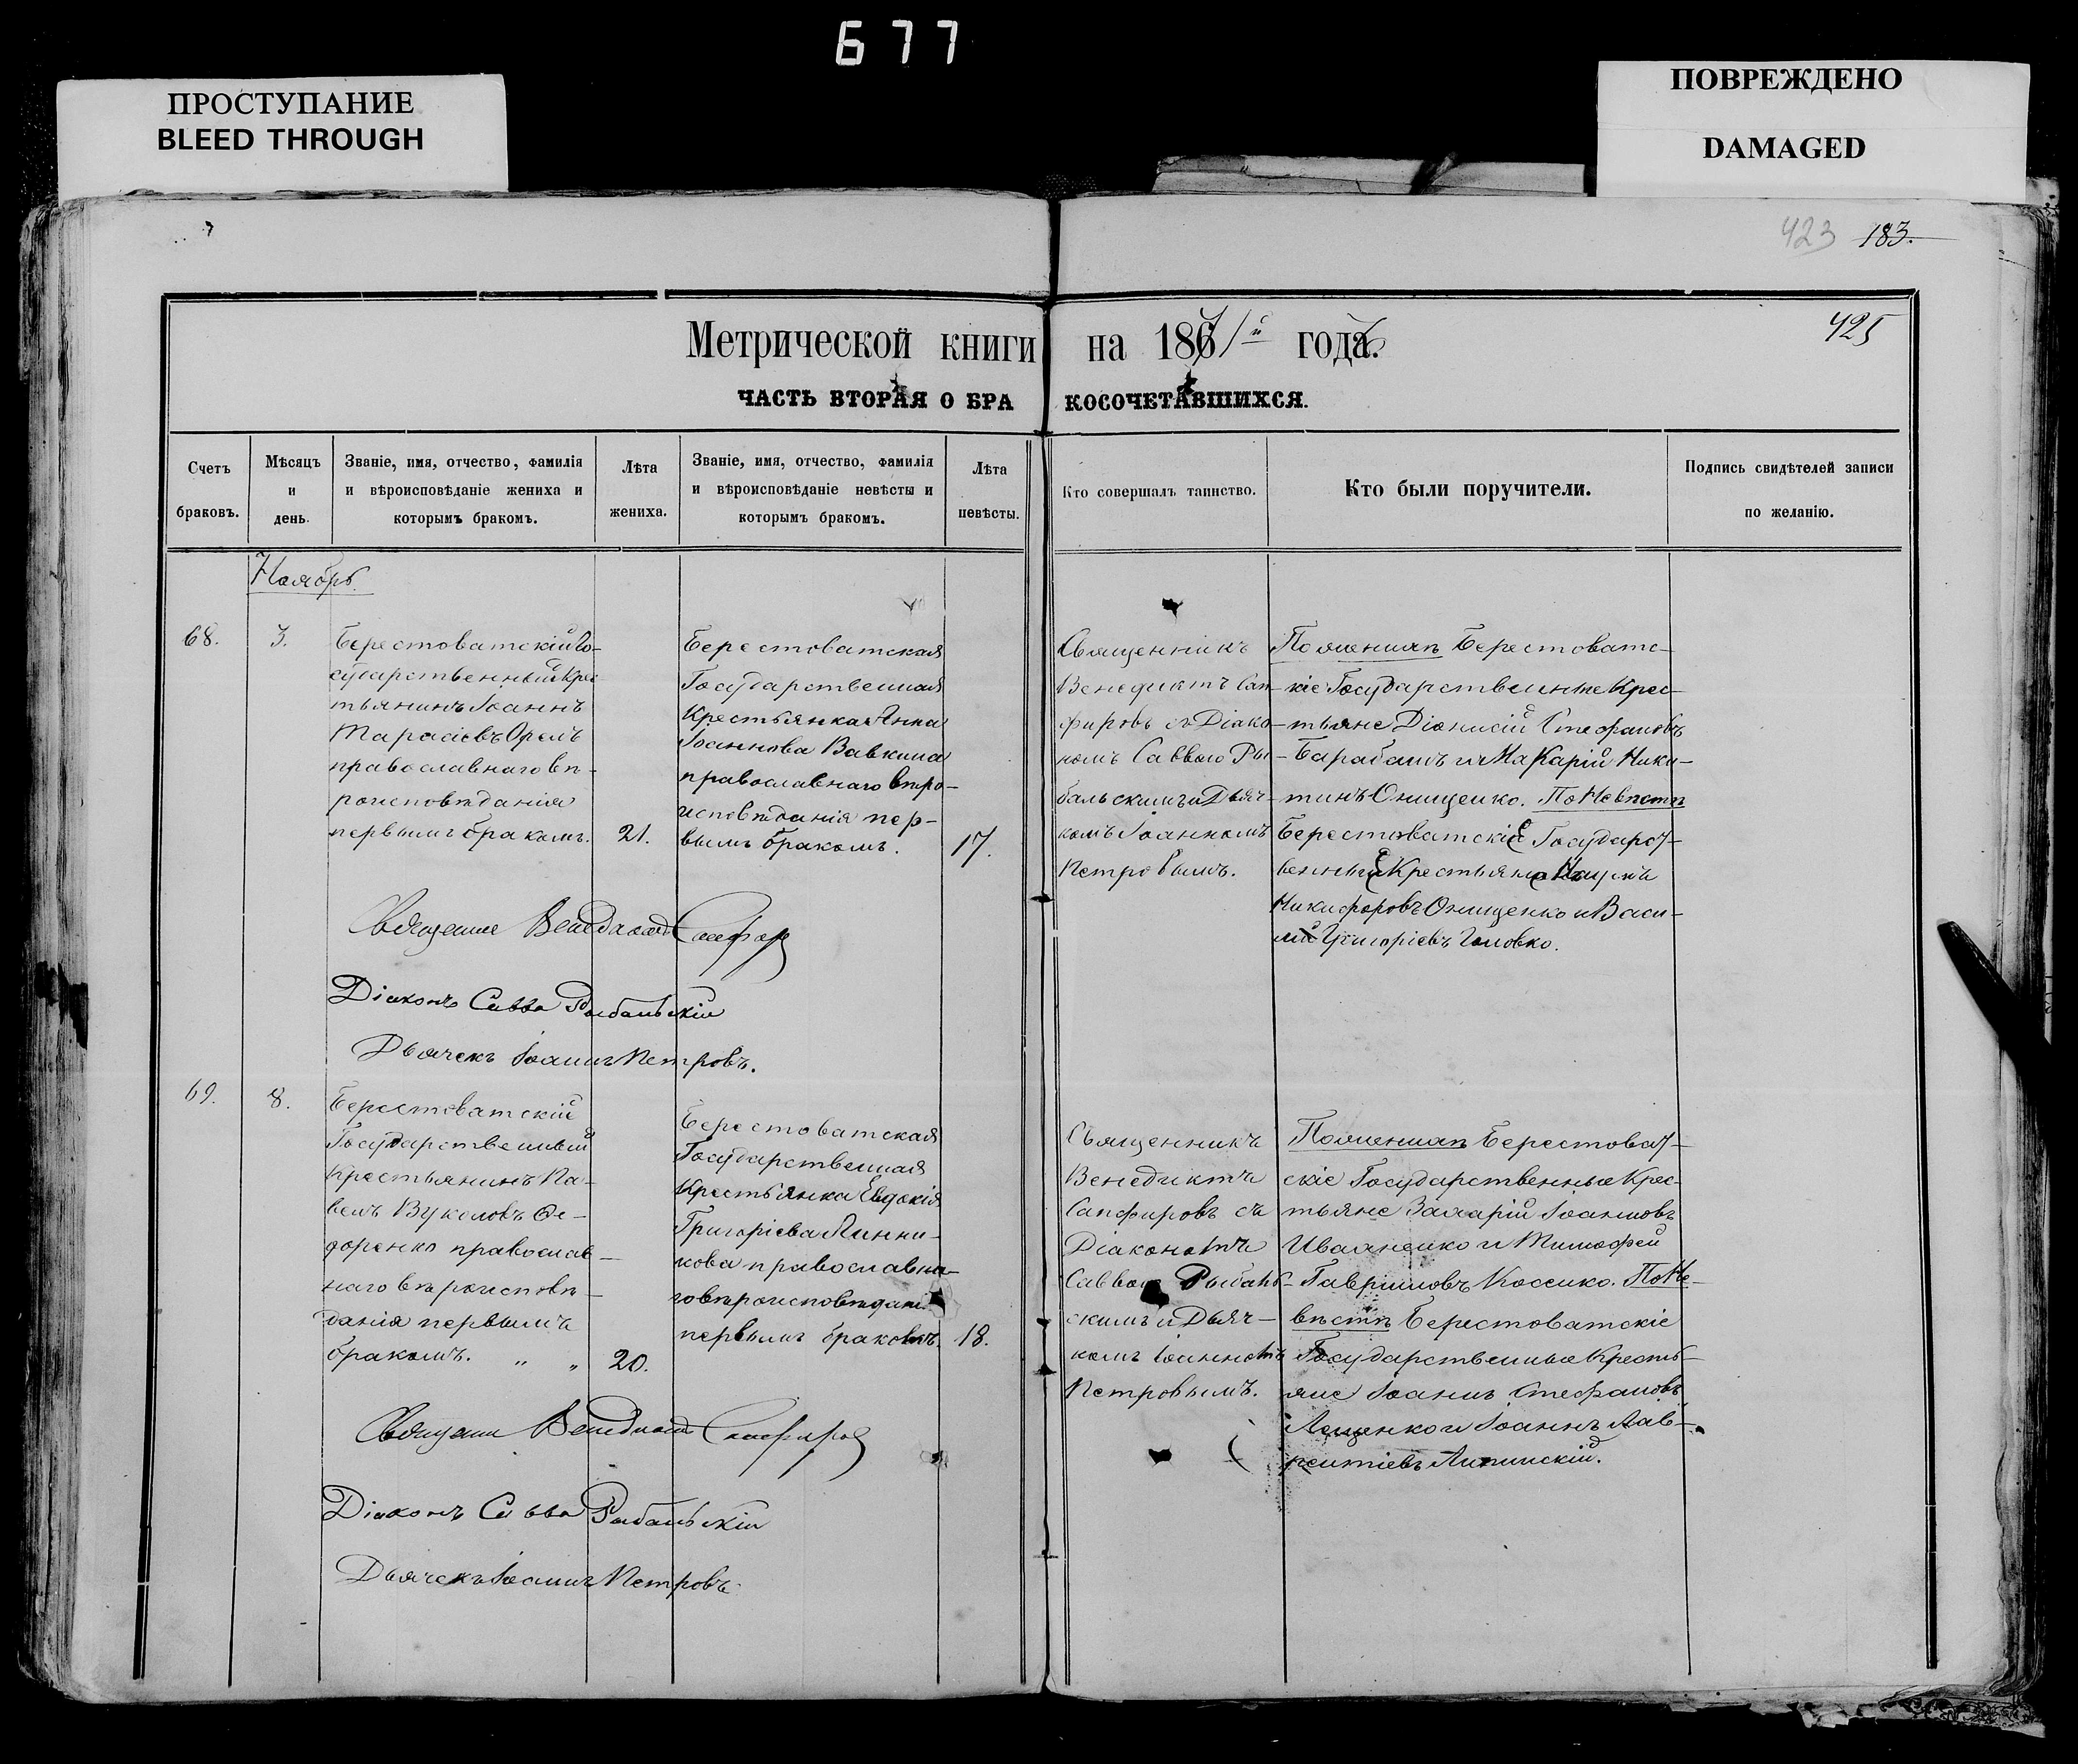 677
ПРОСТУПАНИЕ
BLEED THROUGH
ПОВРЕЖДЕНО
DAMAGED
423 183.
425
Метрической книги на 1871й годъ.
ЧАСТЬ ВТОРАЯ О БРАКОСОЧЕТАВШИХСЯ.
Счетъ
браковъ.
Мѣсяцъ
и
день.
Званіе, имя, отчество, фамилія
и вѣроисповѣданіе жениха и
которымъ бракомъ.
Лѣта
жениха.
Званіе, имя, отчество, фамилія
и вѣроисповѣданіе невѣсты и
которымъ бракомъ.
Лѣта
невѣсты.
Кто совершалъ таинство.
Кто были поручители.
Подпись свидѣтелей записи
по желанію.
Ноябрь.
68.
3.
Берестоватскій Го-
сударственный Крес-
тьянинъ Іоаннъ
Тарасіевъ Орелъ
православнаго вѣ-
роисповѣданія
первымъ бракомъ.
21.
Берестоватская
Государственная
Крестьянка Анна
Іоаннова Бабкина
православнаго вѣро-
исповѣданія пер-
вымъ бракомъ.
17.
Священникъ
Венедиктъ Сап-
фировъ съ Діако-
номъ Саввою Ры-
бальскимъ и Дьяч-
комъ Іоанномъ
Петровымъ.
По женихѣ Берестоватс-
кіе Государственные Крес-
тьяне Діонисій Стефановъ
Барабашъ и Макарій Ники-
тинъ Онищенко. По Невѣстѣ
Берестоватскіе Государст-
венные Крестьяне Наумъ
Никифоровъ Онищенко и Васи-
лій Григоріевъ Головко.
Священник Венедикт Сапфиров
Діаконъ Савва Рыбальскій
Дьячекъ Іоаннъ Петровъ.
69.
8.
Берестоватскій
Государственный
Крестьянинъ Па-
велъ Вуколовъ Ѳе-
доренко православ-
наго вѣроисповѣ-
данія первымъ
бракомъ. " "
20.
Берестоватская
Государственная
Крестьянка Евдокія
Григоріева Линни-
кова православна-
го вѣроисповѣдані
первымъ бракомъ.
18.
Священникъ
Венедиктъ
Сапфировъ съ
Діакономъ
Саввою Рыбаль-
скимъ и Дьяч-
комъ Іоанномъ
Петровымъ.
По женихѣ Берестоват-
скіе Государственные Крес-
тьяне Захарій Іоанновъ
Иваненко и Тимофей
Гавриловъ Косенко. По Не-
вѣстѣ Берестоватскіе
Государственные Кресть-
яне Іоаннъ Стефановъ
Лещенко и Іоаннъ Лав-
рентіевъ Липинскій.
Священник Венедикт Сапфиров
Діаконъ Савва Рыбальскій
Дьячекъ Іоаннъ Петровъ.